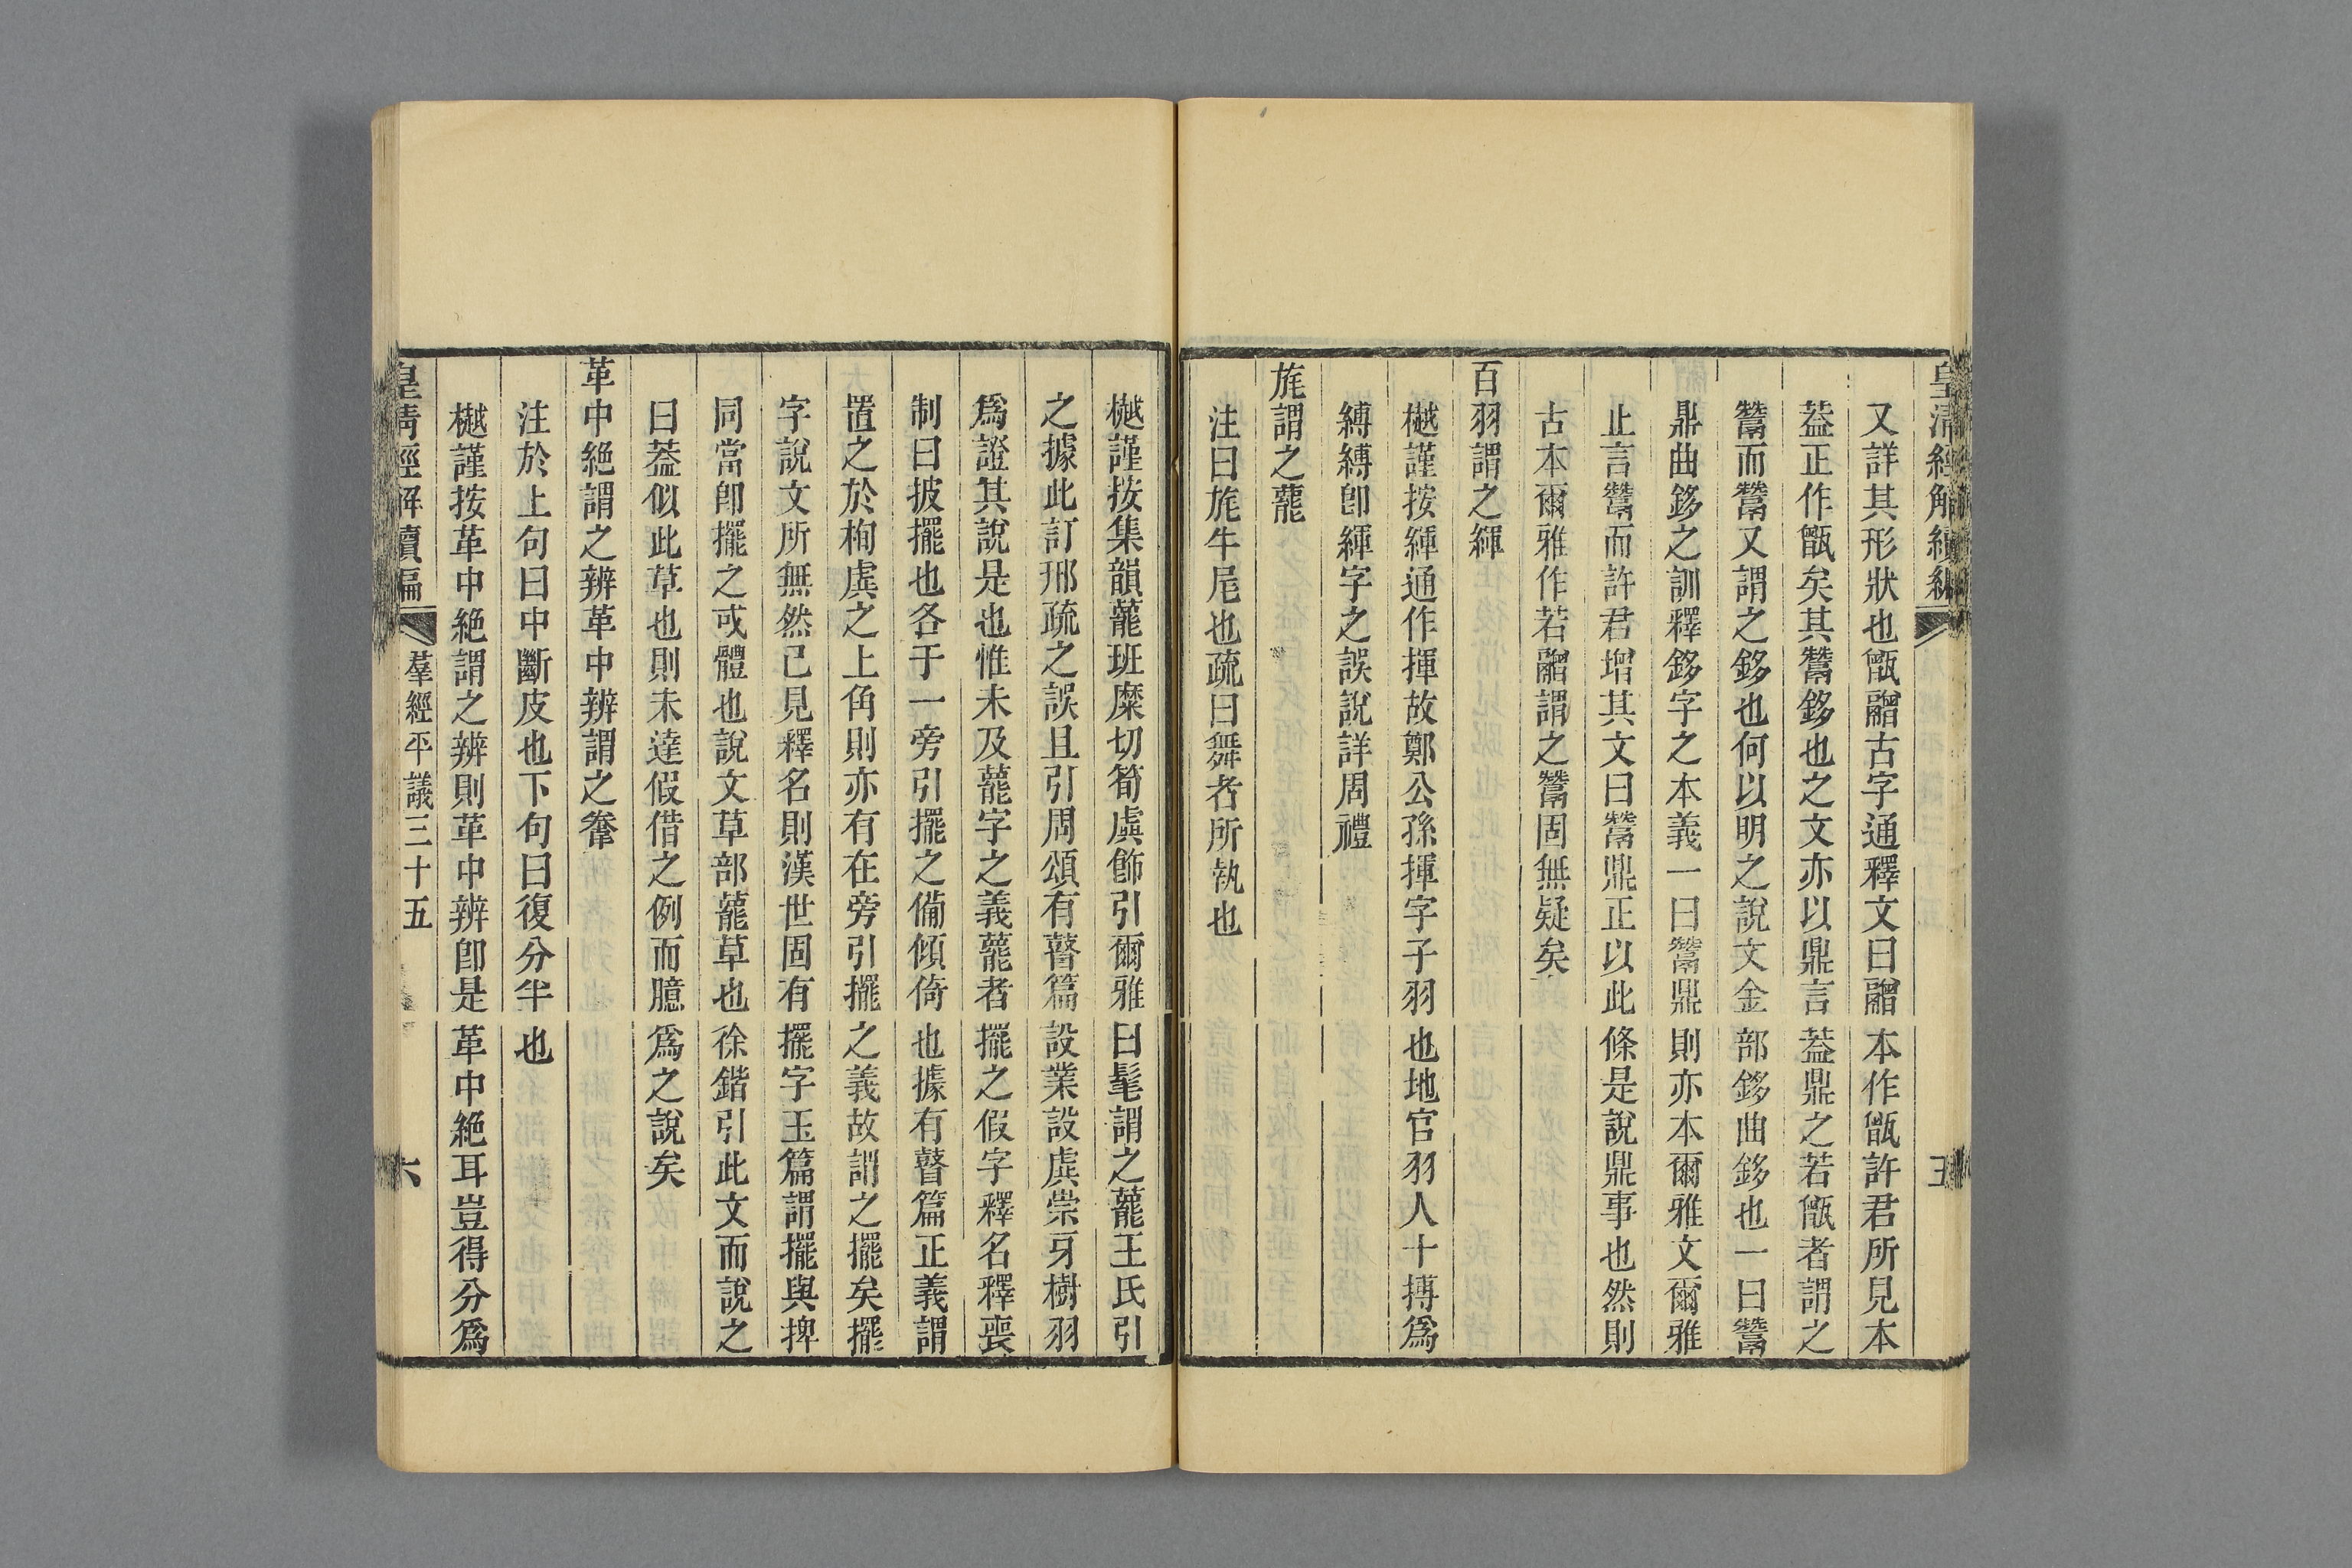 皇清經解續編
又詳其形狀也甑䰝古字通釋文曰䰝本作甑許君所見本
葢正作甑矣其鬵鉹也之文亦以鼎言葢鼎之若甑者謂之
鬵而鬵又謂之鉹也何以明之說文金部鉹曲鉹也一曰鬵
鼎曲鉹之訓釋鉹字之本義一曰鬵鼎則亦本爾雅文爾雅
止言鬵而許君增其文曰鬵鼎正以此條是說鼎事也然則
古本爾雅作若䰝謂之鬵固無疑矣
百羽謂之緷
樾謹按緷通作揮故鄭公孫揮字子羽也地官羽人十摶爲
縛縛卽緷字之誤說詳周禮
旄謂之藣
注曰旄牛尾也疏曰舞者所執也
樾謹按集韻藣班糜切筍虡飾引爾雅曰髦謂之藣王氏引
之據此訂邢疏之誤且引周頌有瞽篇設業設虡崇牙樹羽
爲證其說是也惟未及藣字之義藣者擺之假字釋名釋喪
制曰披擺也各于一旁引擺之備傾倚也據有瞽篇正義謂
置之於栒虡之上角則亦有在旁引擺之義故謂之擺矣擺
字說文所無然已見釋名則漢世固有擺字玉篇謂擺與捭
同當卽擺之或體也說文草部藣草也徐鍇引此文而說之
曰葢似此草也則未達假借之例而臆爲之說矣
革中絶謂之辨革中辨謂之韏
注於上句曰中斷皮也下句曰復分半也
樾謹按革中絶謂之辨則革中辨卽是革中絶耳豈得分爲
皇清經解續編
羣經平議三十五
六